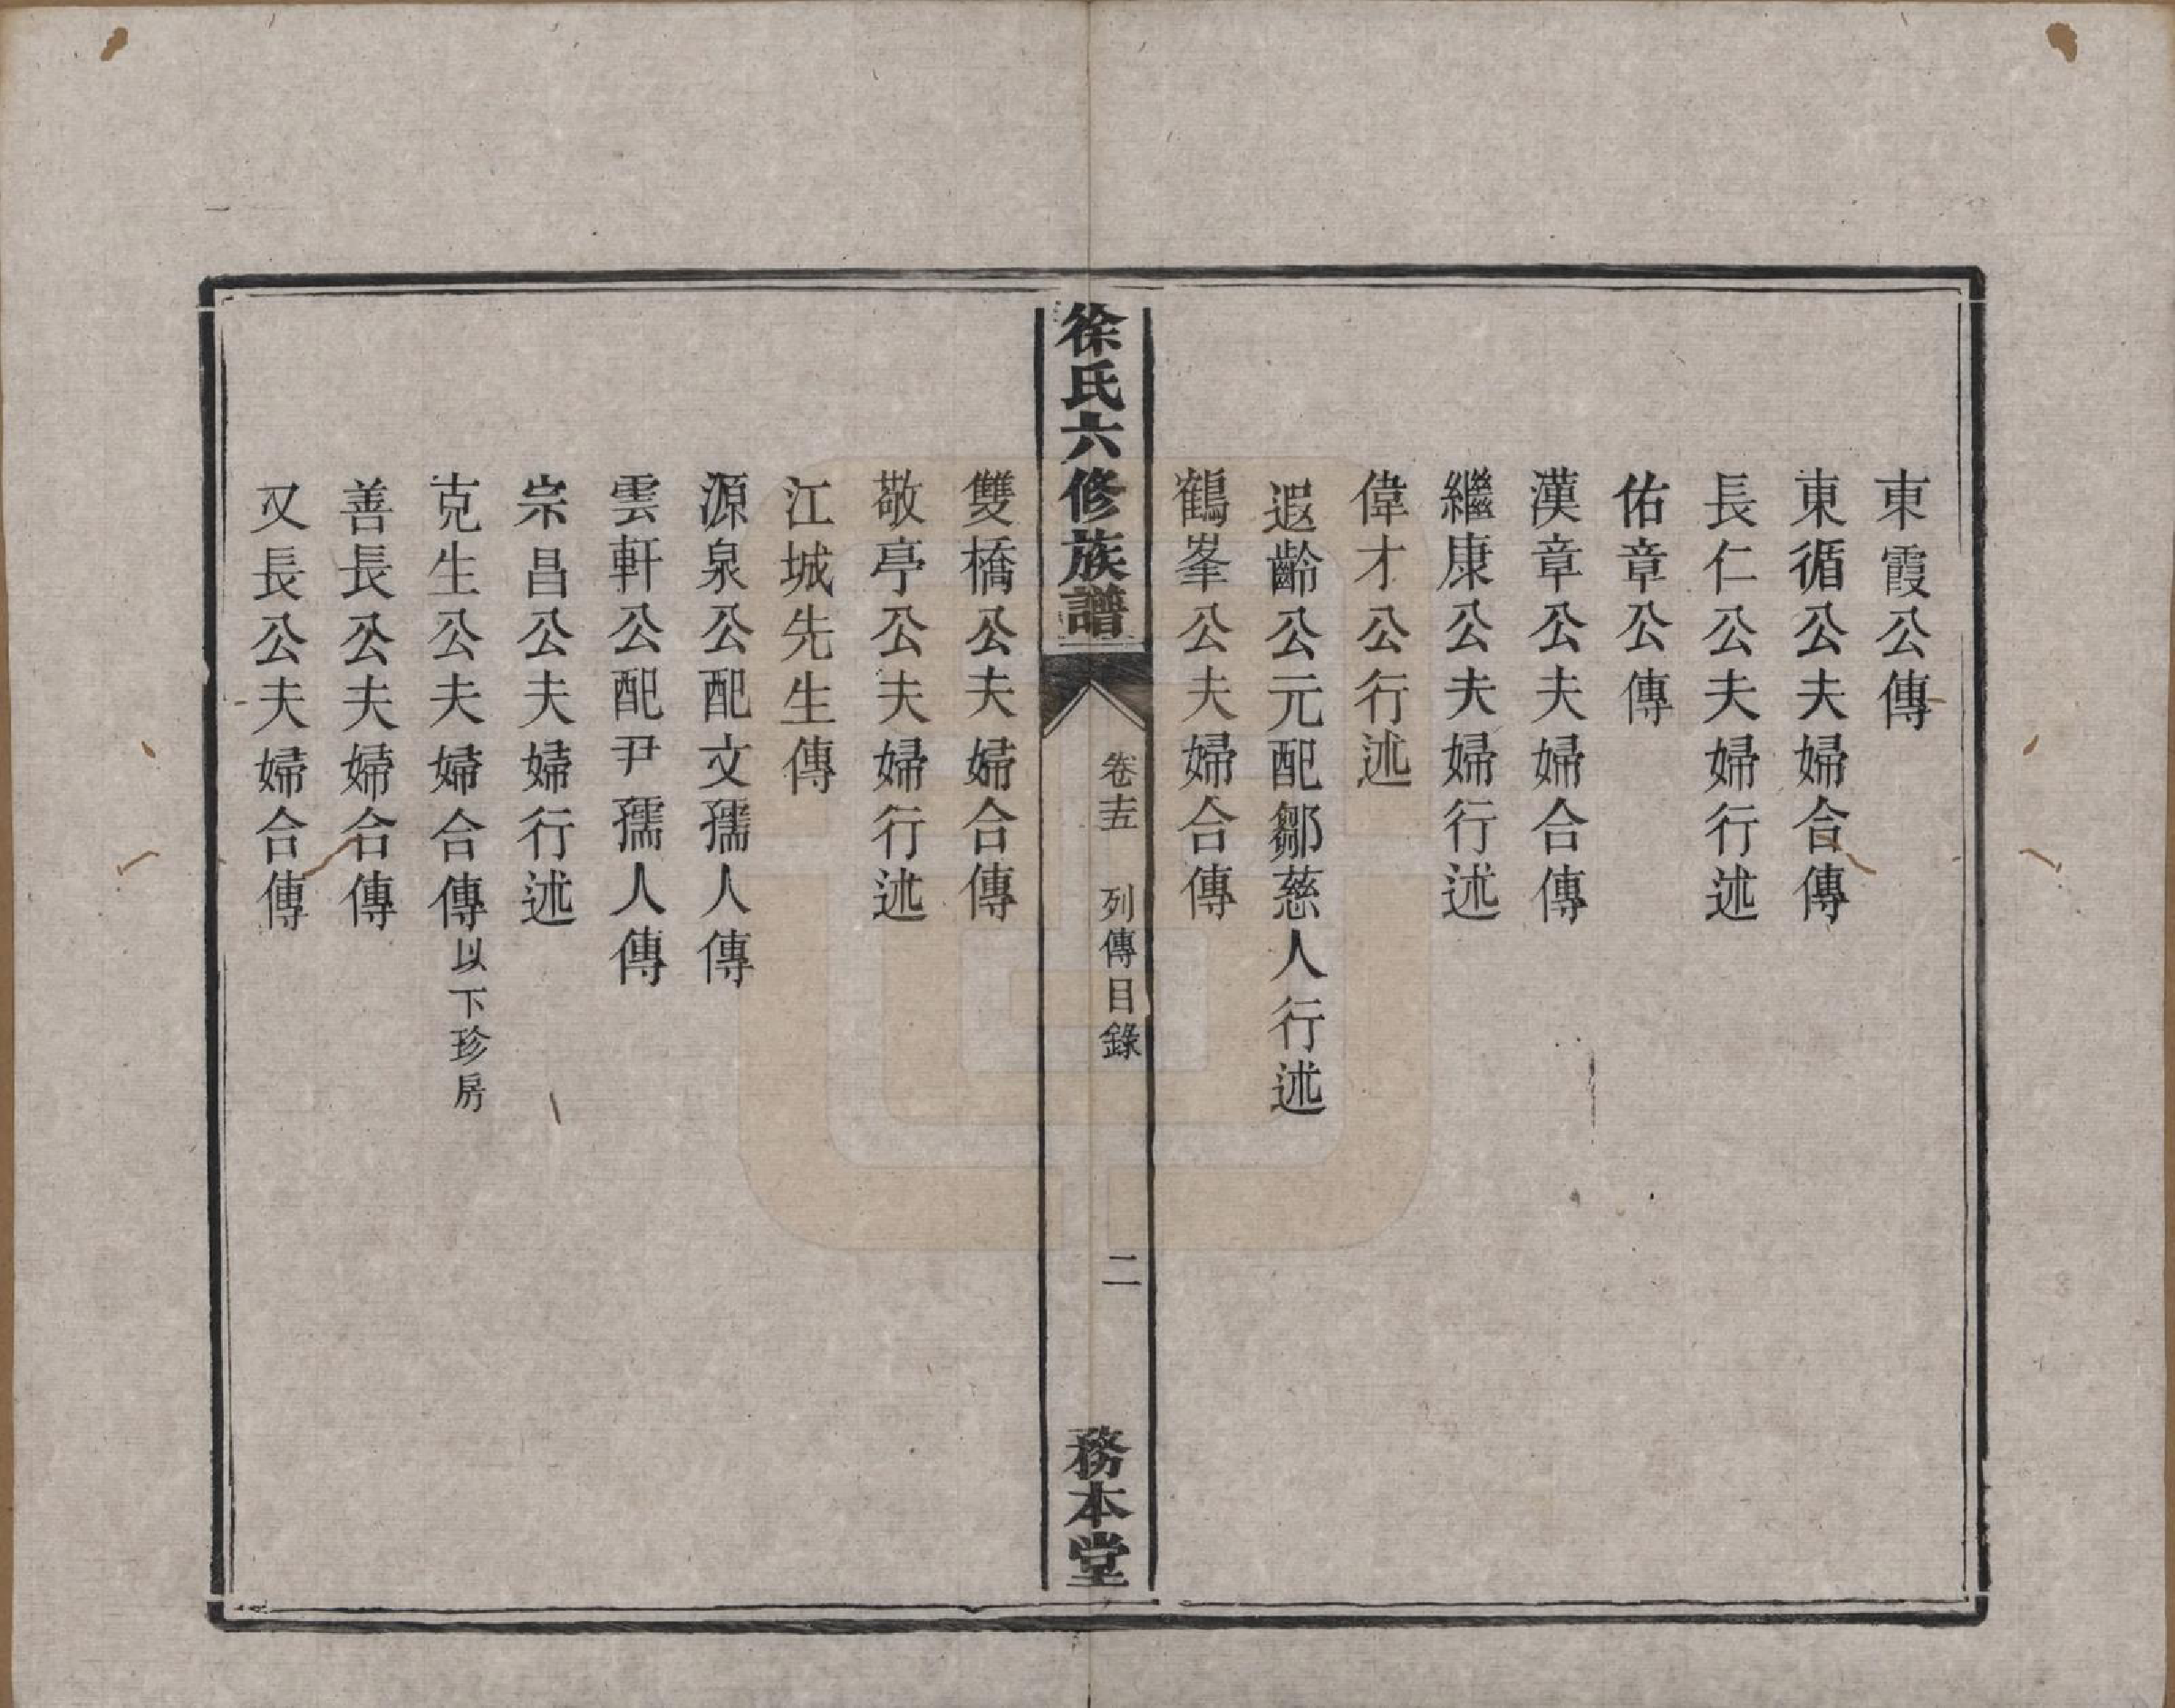 東霞公傳
東循公夫婦合傳
長仁公夫婦行述
佑章公傳
漢章公夫婦合傳
繼康公夫婦行述
偉才公行述
遐齡公元配鄒慈人行述
鶴峯公夫婦合傳
徐氏六修族譜
卷十五 列傳目錄
二
務本堂
雙橋公夫婦合傳
敬亭公夫婦行述
江城先生傳
源泉公配文孺人傳
雲軒公配尹孺人傳
宗昌公夫婦行述
克生公夫婦合傳以下珍房
善長公夫婦合傳
又長公夫婦合傳